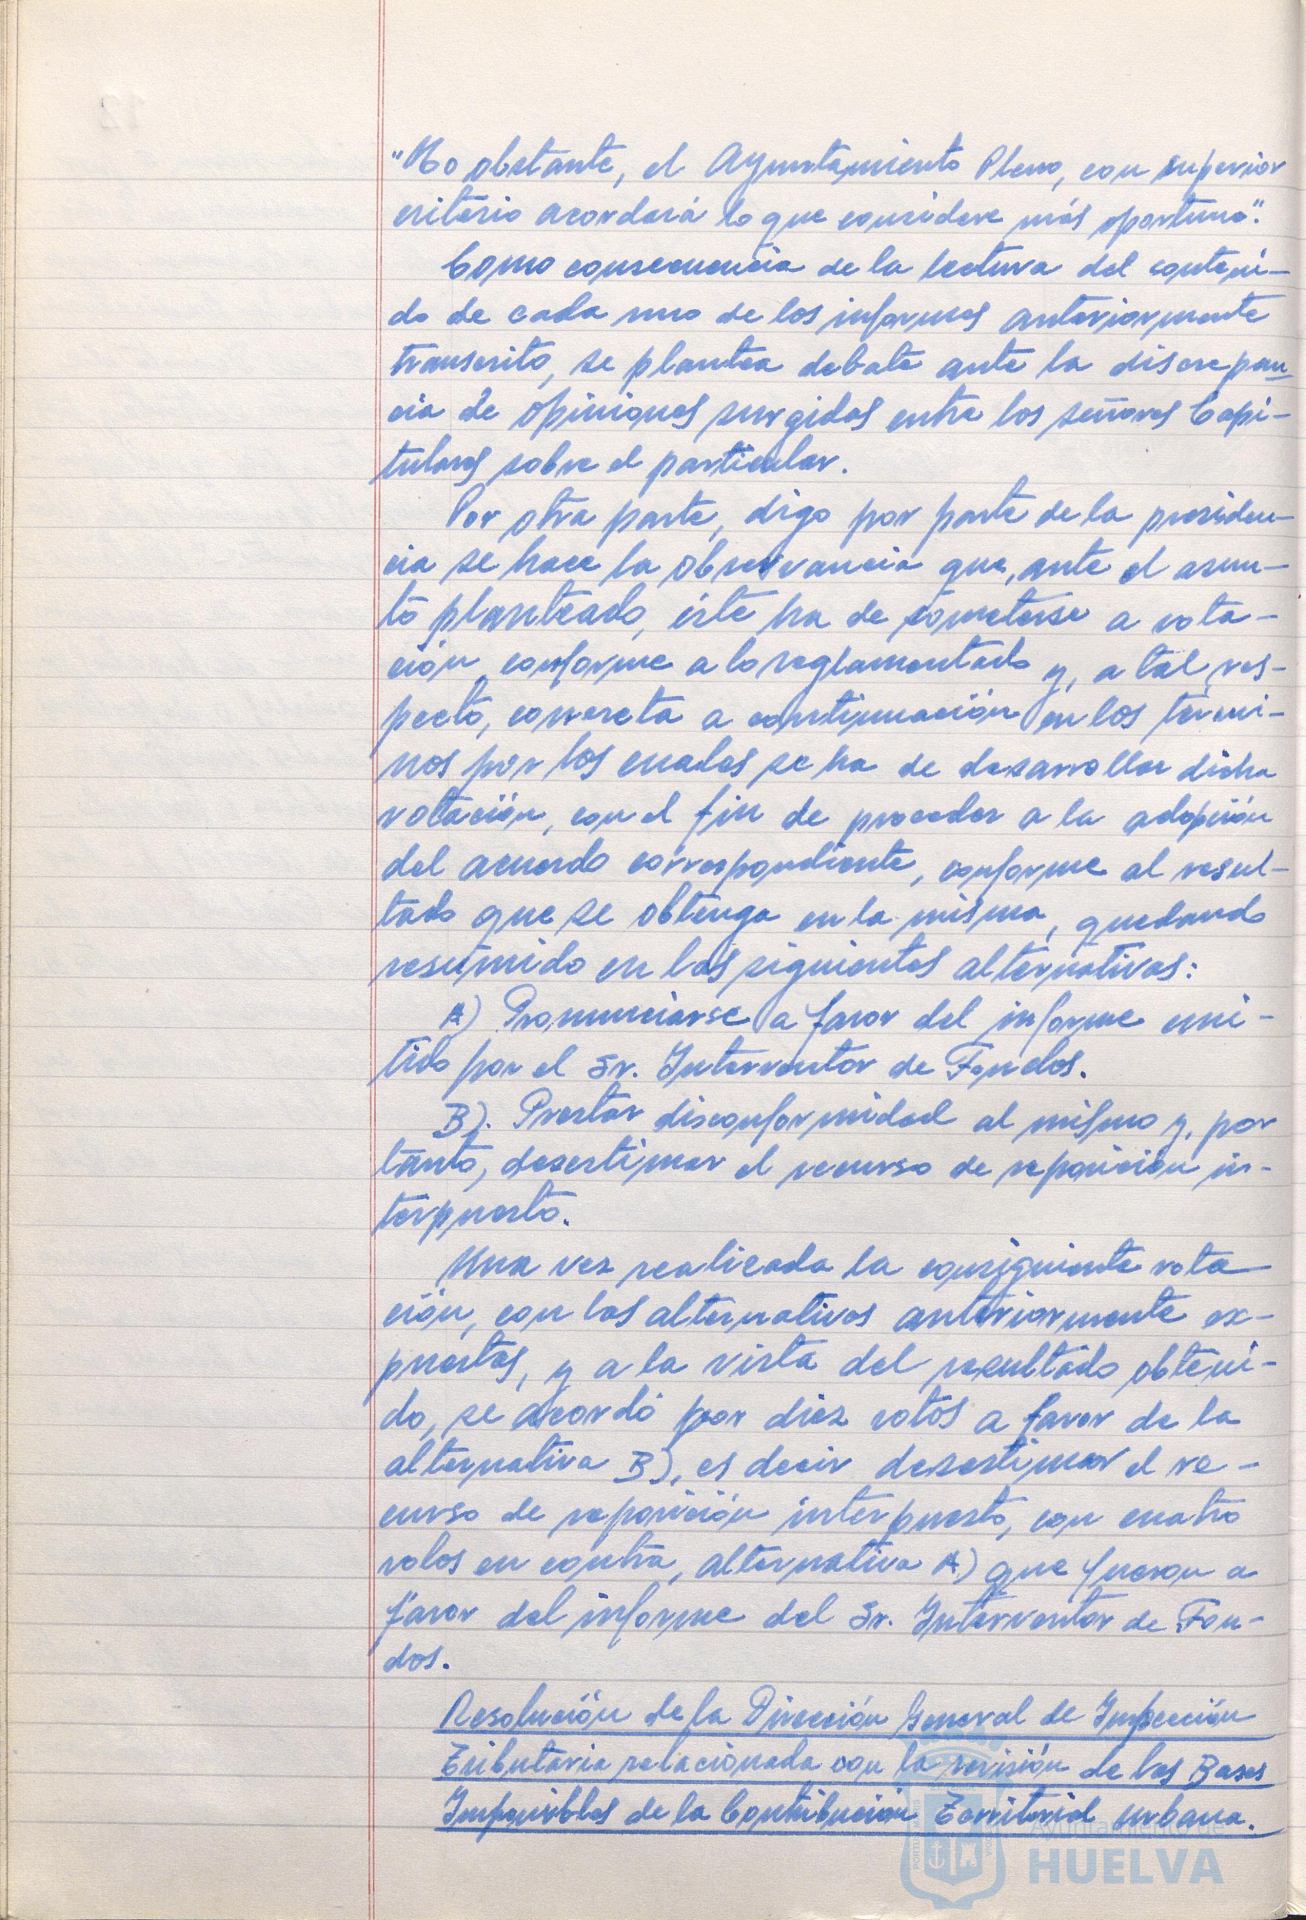 "No obstante, el Ayuntamiento Pleno, con superior
criterio acordará lo que considere más oportuno".
Como consecuencia de la lectura del conteni-
do de cada uno de los informes anteriormente
transcrito, se plantea debate ante la discrepan-
cia de opiniones surgidas entre los señores Capi-
tulares sobre el particular.
Por otra parte, digo por parte de la presiden-
cia se hace la observancia que, ante el asun-
to planteado, éste ha de someterse a vota-
ción, conforme a lo reglamentado y, a tal res-
pecto, concreta a continuación en los térmi-
nos por los cuales se ha de desarrollar dicha
votación, con el fin de proceder a la adopción
del acuerdo correspondiente, conforme al resul-
tado que se obtenga en la misma, quedando
resumido en las siguientes alternativas:
A) Pronunciarse a favor del informe emi-
tido por el Sr. Interventor de Fondos.
B). Prestar disconformidad al mismo y, por
tanto, desestimar el recurso de reposición in-
terpuesto.
Una vez realizada la consiguiente vota
ción, con las alternativas anteriormente ex-
puestas, y a la vista del resultado obteni-
do, se acordó por diez votos a favor de la
alternativa B), es decir desestimar el re-
curso de reposición interpuesto, con cuatro
votos en contra, alternativa A) que fueron a
favor del informe del Sr. Interventor de Fon-
dos.
Resolución de la Dirección General de Inspección
Tributaria relacionada con la revisión de las Bases
Imponibles de la Contribución Territorial Urbana.
Ayuntamiento de
HUELVA